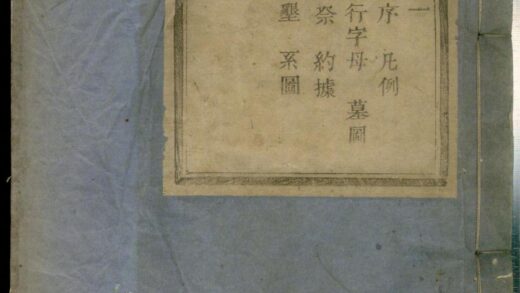 一
序 凡例
行字母 墓圖
祭 約據
墾 系圖